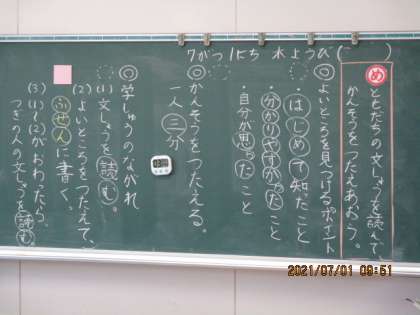 7がつ1にち 木ようび( )
め
ともだちの文しょうを読んで
かんそうをつたえあおう。
◎よいところを見つけるポイント
・はじめて知ったこと
・分かりやすかったこと
・自分が思ったこと
◎かんそうをつたえる。
一人三分
◎学しゅうのながれ
(1)文しょうを読む。
(2)よいところをつたえて、
ふせんに書く。
(3)(1)(2)がおわったら、
つぎの人の文しょうを読む
2021/07/01 09:51